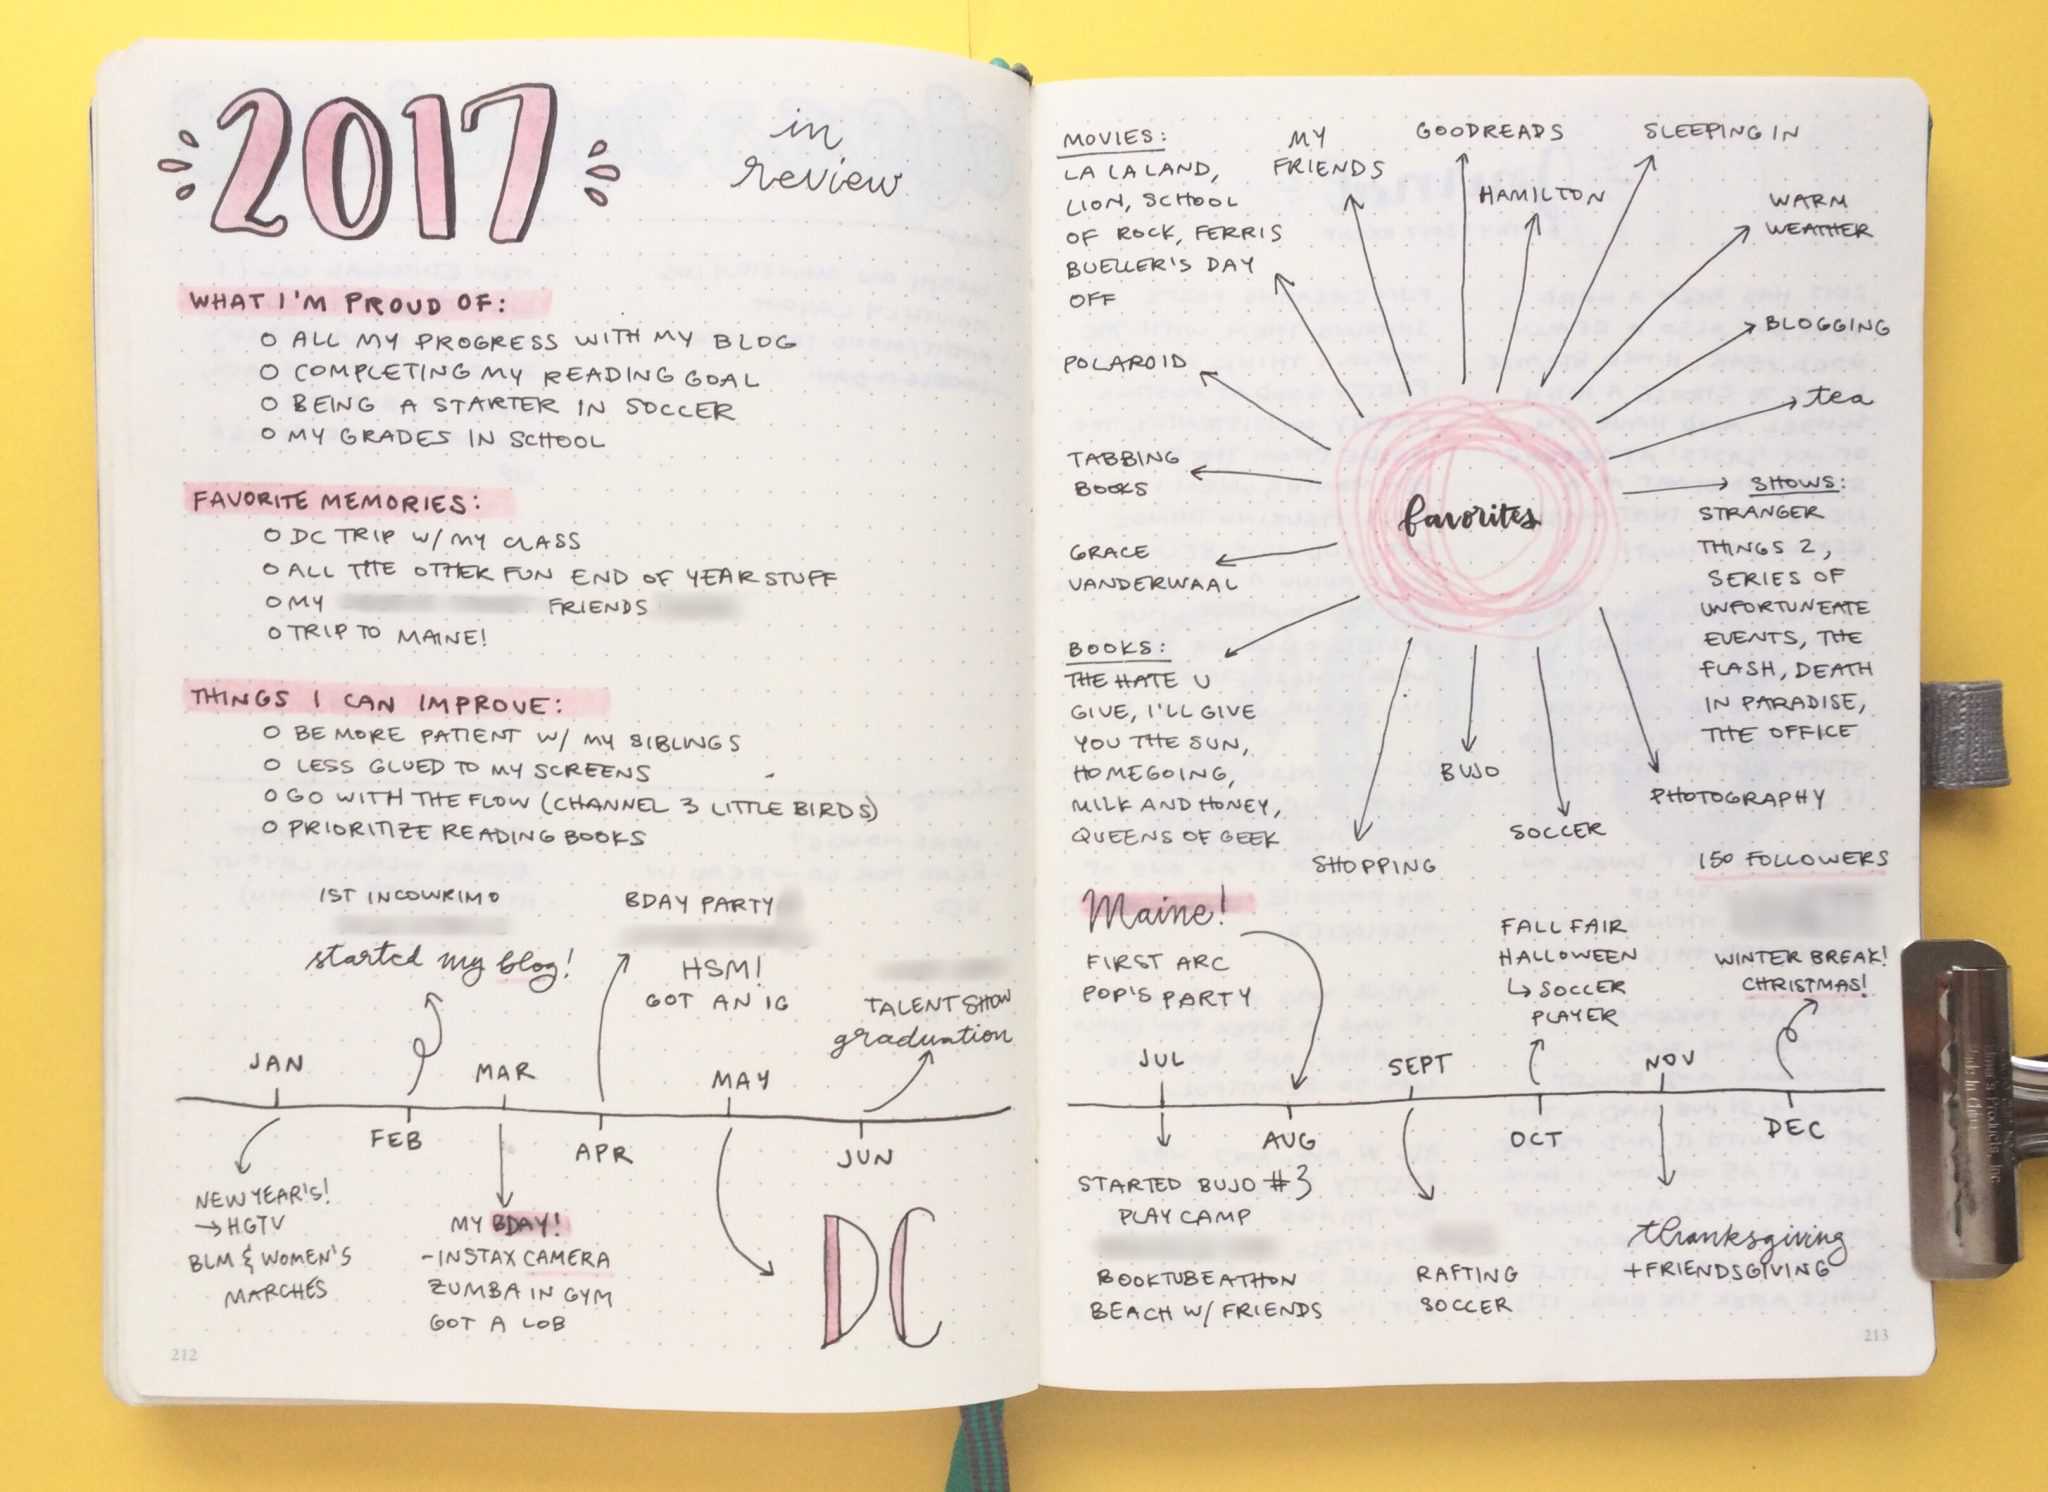 2017
in
review
WHAT I'M PROUD OF:
O ALL MY PROGRESS WITH MY BLOG
O COMPLETING MY READING GOAL
O BEING A STARTER IN SOCCER
O MY GRADES IN SCHOOL
FAVORITE MEMORIES:
O DC TRIP W/ MY CLASS
O ALL THE OTHER FUN END OF YEAR STUFF
O MY FRIENDS
O TRIP TO MAINE!
THINGS I CAN IMPROVE:
O BE MORE PATIENT W/ MY SIBLINGS
O LESS GLUED TO MY SCREENS
O GO WITH THE FLOW (CHANNEL 3 LITTLE BIRDS)
O PRIORITIZE READING BOOKS
1ST INCOWRIMO
started my blog!
BDAY PARTY
HSM!
GOT AN IG
TALENT SHOW
graduation
JAN
FEB
MAR
APR
MAY
JUN
NEW YEAR'S!
→ HGTV
BLM & WOMEN'S
MARCHES
MY BDAY!
- INSTAX CAMERA
ZUMBA IN GYM
GOT A LOB
DC
212
MOVIES:
LA LA LAND,
LION, SCHOOL
OF ROCK, FERRIS
BUELLER'S DAY
OFF
MY
FRIENDS
GOODREADS
HAMILTON
SLEEPING IN
WARM
WEATHER
BLOGGING
tea
POLAROID
TABBING
BOOKS
GRACE
VANDERWAAL
favorites
SHOWS:
STRANGER
THINGS 2,
SERIES OF
UNFORTUNEATE
EVENTS, THE
FLASH, DEATH
IN PARADISE,
THE OFFICE
BOOKS:
THE HATE U
GIVE, I'LL GIVE
YOU THE SUN,
HOMEGOING,
MILK AND HONEY,
QUEENS OF GEEK
SHOPPING
BUJO
SOCCER
PHOTOGRAPHY
150 FOLLOWERS
Maine!
FIRST ARC
POP'S PARTY
FALL FAIR
HALLOWEEN
↳ SOCCER
PLAYER
WINTER BREAK!
CHRISTMAS!
JUL
AUG
SEPT
OCT
NOV
DEC
STARTED BUJO #3
PLAY CAMP
BOOKTUBEATHON
BEACH W/ FRIENDS
RAFTING
SOCCER
thanksgiving
+ FRIENDSGIVING
213